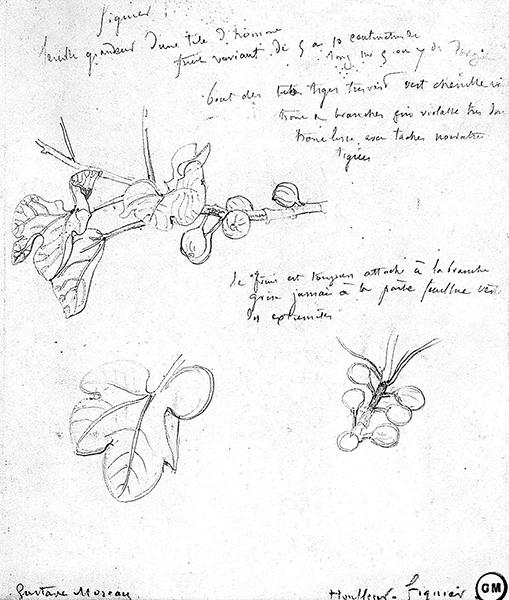 figuier
feuille grandeur d'une tête d'homme
fruit variant de 5 a 10 centimètres
long sur 5 ou 7 de
bout des tiges très vert
tronc a branches gris violatre très
tronc lisse avec taches noirâtres
tigrées
le fruit est toujours attaché à la branche
grise jamais à la partie feuillue verte
des extremités
Gustave Moreau
Honfleur - figuier
GM